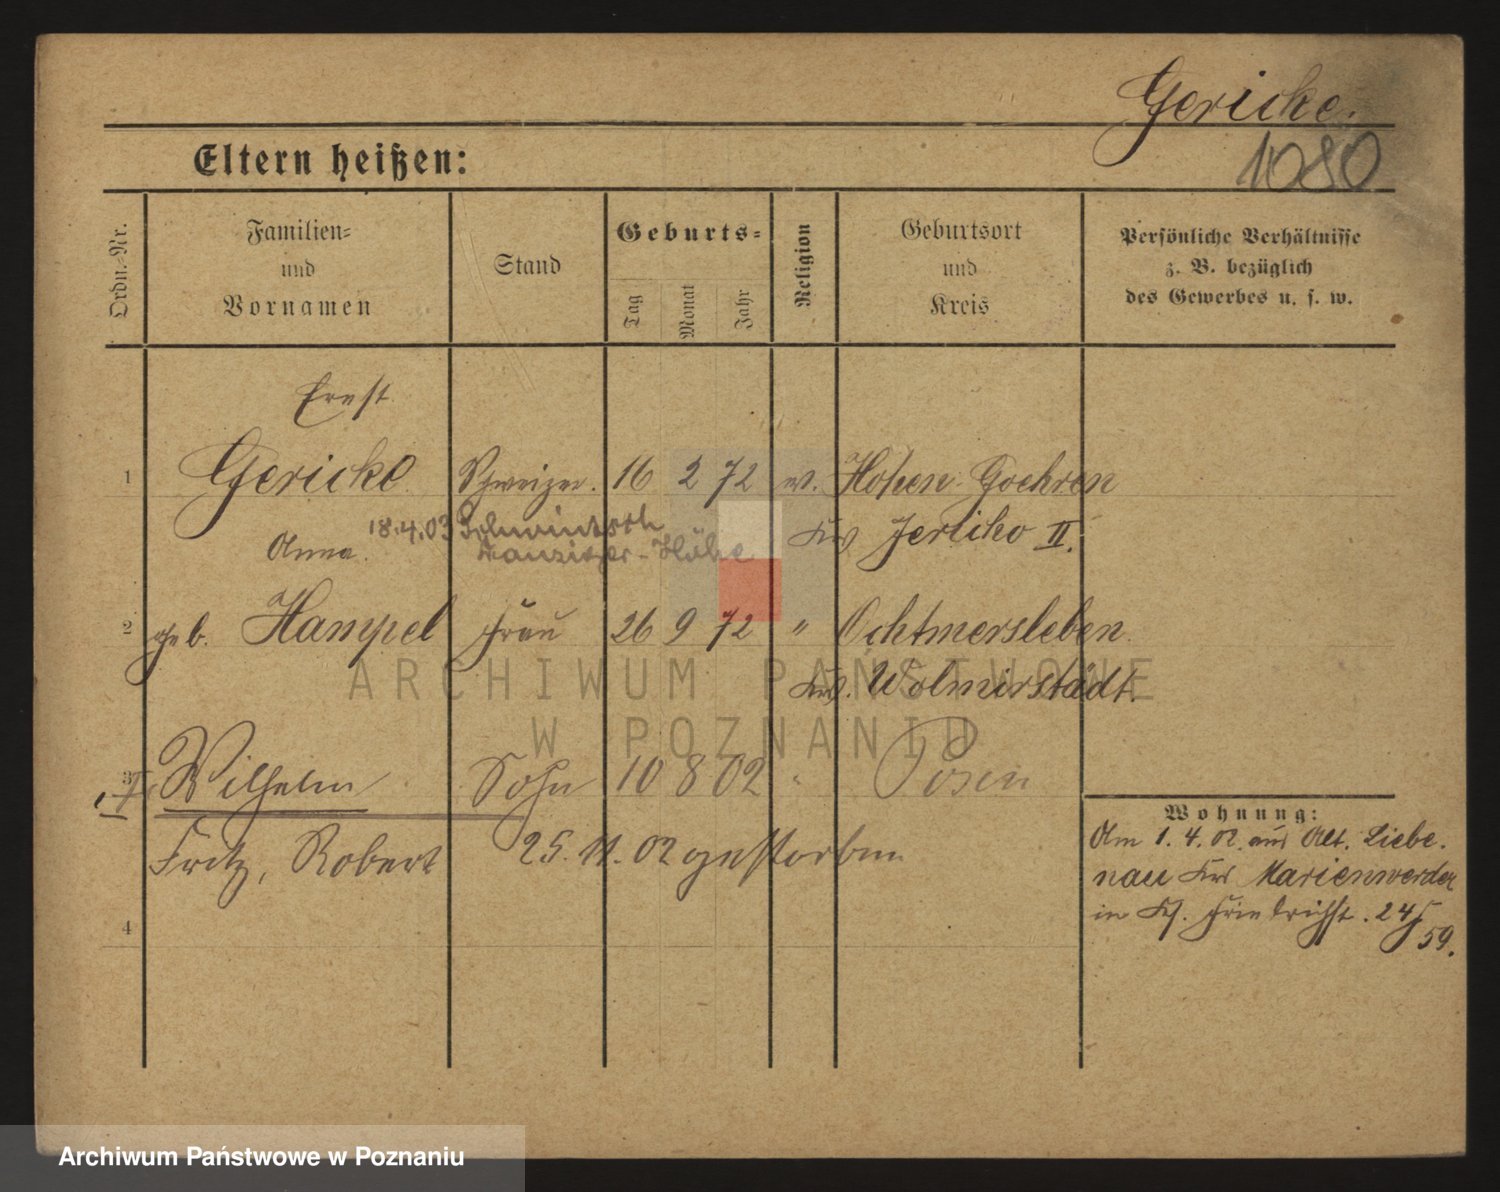 Gericke.
1080
Eltern heißen:
Ordn.-Nr.
Familien-
und
Vornamen
Stand
Geburts-
Tag
Monat
Jahr
Religion
Geburtsort
und
Kreis
Persönliche Verhältnisse
z. B. bezüglich
des Gewerbes u. s. w.
Ernst
1 Gericke Schweizer. 16 2 72 ev. Hohen-Goehren
18.4.03
Krs Jericho II.
Anna.
2 geb. Hampel Frau 26 9 72 " Ochtmersleben
Krs. Wolmirstädt.
3 Wilhelm Sohn 10 8 02 " Posen
Fritz, Robert 25.11.02 gestorben
4
Wohnung:
Am 1.4.02 aus Alt. Liebe-
nau Krs Marienwerder
in Kl. 24/
59.
ARCHIWUM PAŃSTWOWE
W POZNANIU
Archiwum Państwowe w Poznaniu